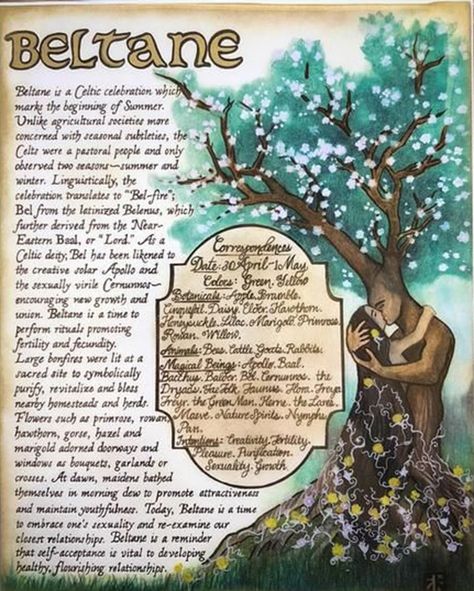 BELTANE
Beltane is a Celtic celebration which
marks the beginning of Summer.
Unlike agricultural societies more
concerned with seasonal subtleties, the
Celts were a pastoral people and only
observed two seasons—summer and
winter. Linguistically, the
celebration translates to "Bel-fire";
Bel from the latinized Belenus, which
further derived from the Near-
Eastern Baal, or "Lord." As a
Celtic deity, Bel has been likened to
the creative solar Apollo and
the sexually virile Cernunnos—
encouraging new growth and
union. Beltane is a time to
perform rituals promoting
fertility and fecundity.
Large bonfires were lit at a
sacred site to symbolically
purify, revitalize and bless
nearby homesteads and herds.
Flowers such as primrose, rowan,
hawthorn, gorse, hazel and
marigold adorned doorways and
windows as bouquets, garlands or
crosses. At dawn, maidens bathed
themselves in morning dew to promote attractiveness
and maintain youthfulness. Today, Beltane is a time
to embrace one's sexuality and re-examine our
closest relationships. Beltane is a reminder
that self-acceptance is vital to developing
healthy, flourishing relationships.
Correspondences
Date: 30 April-1 May
Colors: Green, Yellow
Botanicals: Apple, Bramble,
Cinquefoil, Daisy, Elder, Hawthorn,
Honeysuckle, Lilac, Marigold, Primrose,
Rowan, Willow.
Animals: Bees, Cattle, Goats, Rabbits.
Magical Beings: Apollo, Baal,
Bacchus, Baldor, Bel, Cernunnos, the
Dryads, Fae Folk, Faunus, Flora, Freya,
Freyr, the Green Man, Herne, the Lares,
Maeve, Nature Spirits, Nymphs,
Pan.
Intentions: Creativity, Fertility,
Pleasure, Purification,
Sexuality, Growth